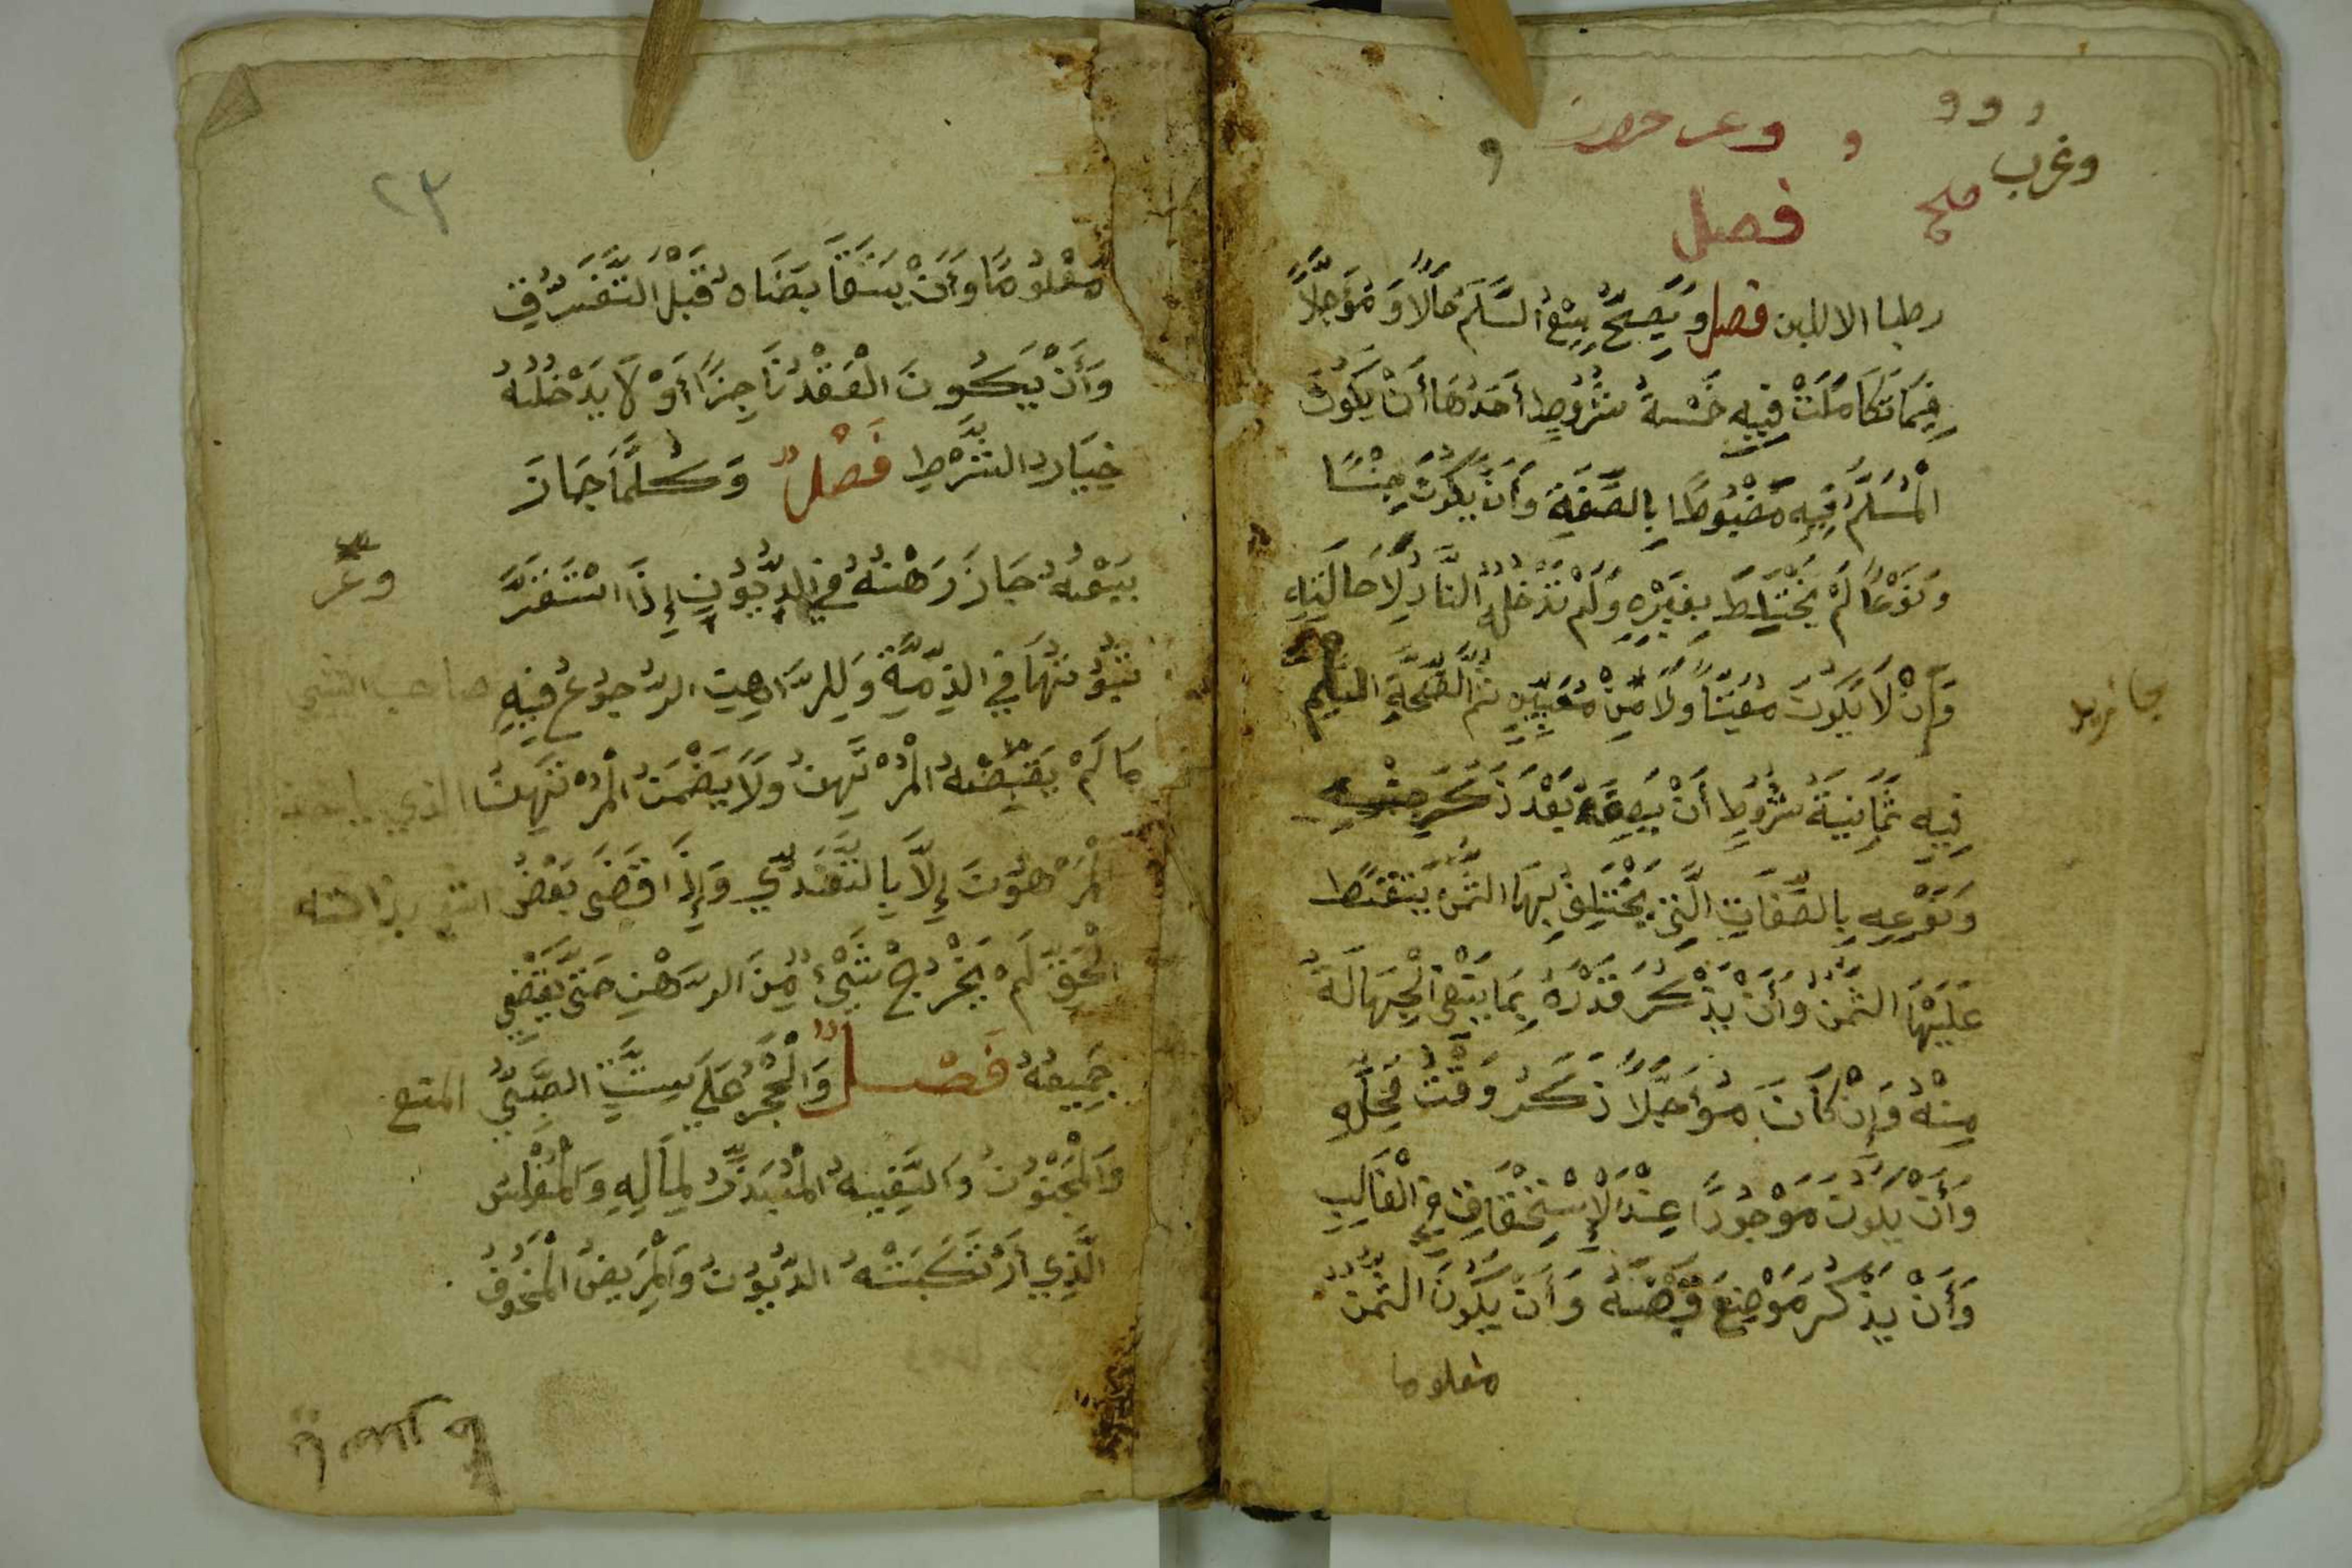 و و و
وغرب
فصل
رطبا الا اللبن فصل وَيَصِحُّ بَيْعُ السَّلَمِ حَالًا وَمُؤَجَّلًا
فِيمَا تَكَامَلَتْ فِيهِ خَمْسَةُ شُرُوطٍ أَحَدُهَا أَنْ يَكُونَ
الْمُسْلَمُ فِيهِ مَضْبُوطًا بِالصِّفَةِ وَأَنْ يَكُونَ جِنْسًا
وَنَوْعًا لَمْ يَخْتَلِطْ بِغَيْرِهِ وَلَمْ تَدْخُلْهُ النَّارُ لِإِحَالَتِهِ
وَأَنْ لَا يَكُونَ مُعَيَّنًا وَلَا مِنْ مُعَيَّنٍ ثُمَّ لِصِحَّةِ السلم
فِيهِ ثَمَانِيَةُ شُرُوطٍ أَنْ يَصِفَهُ بَعْدَ ذِكْرِ جِنْسِهِ
وَنَوْعِهِ بِالصِّفَاتِ الَّتِي يَخْتَلِفُ بِهَا الثَّمَنُ
عَلَيْهَا الثَّمَنُ وَأَنْ يَذْكُرَ قَدْرَهُ بِمَا يَنْفِي الْجَهَالَةَ
مِنْهُ وَإِنْ كَانَ مُؤَجَّلًا ذَكَرَ وَقْتَ مَحِلِّهِ
وَأَنْ يَكُونَ مَوْجُودًا عِنْدَ الْإِسْتِحْقَاقِ فِي الْغَالِبِ
وَأَنْ يَذْكُرَ مَوْضِعَ قَبْضِهِ وَأَنْ يَكُونَ الثَّمَنُ
معلوما
٢٣
مَعْلُومًا وَأَنْ يَتَقَابَضَاهُ قَبْلَ التَّفَرُّقِ
وَأَنْ يَكُونَ الْعَقْدُ نَاجِزًا أَوْ لَا يَدْخُلُهُ
خِيَارُ الشَّرْطِ فَصْلٌ وَكُلَّمَا جَازَ
بَيْعُهُ جَازَ رَهْنُهُ فِي الدُّيُونِ إِذَا اسْتَقَرَّ
ثُبُوتُهَا فِي الذِّمَّةِ وَلِلرَّاهِنِ الرُّجُوعُ فِيهِ صاحب
مَا لَمْ يَقْبِضْهُ الْمُرْتَهِنُ وَلَا يَضْمَنُ الْمُرْتَهِنُ الذي
الْمَرْهُونَ إِلَّا بِالتَّعَدِّي وَإِذَا قَضَى بَعْضَ
الْحَقِّ لَمْ يَخْرُجْ شَيْءٌ مِنَ الرَّهْنِ حَتَّى يَقْضِيَ
جَمِيعَهُ فَصْلٌ وَالْحَجْرُ عَلَى سِتَّةٍ الصَّبِيُّ
وَالْمَجْنُونُ وَالسَّفِيهُ الْمُبَذِّرُ لِمَالِهِ وَالْمُفْلِسُ
الَّذِي ارْتَكَبَتْهُ الدُّيُونُ وَالْمَرِيضُ الْمَخُوفُ